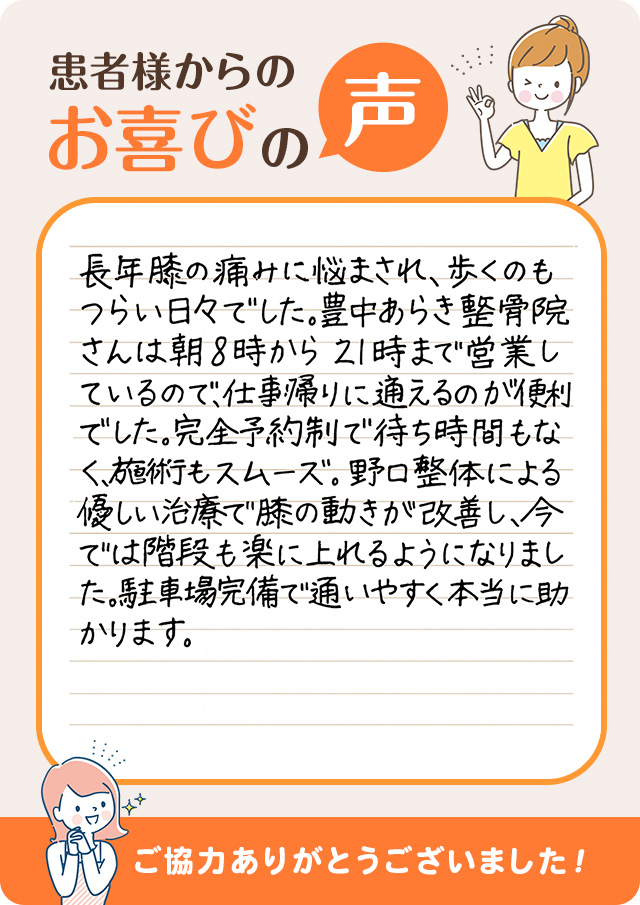 患者様からの
お喜びの声
長年膝の痛みに悩まされ、歩くのも
つらい日々でした。豊中あらき整骨院
さんは朝8時から21時まで営業し
ているので、仕事帰りに通えるのが便利
でした。完全予約制で待ち時間もな
く、施術もスムーズ。野口整体による
優しい治療で膝の動きが改善し、今
では階段も楽に上れるようになりまし
た。駐車場完備で通いやすく本当に助
かります。
ご協力ありがとうございました!